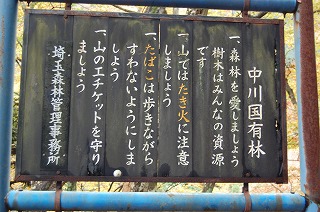 中川国有林
一、森林を愛しましょう
樹木はみんなの資源
です
一、山ではたき火に注意
しましょう
一、たばこは歩きながら
すわないようにしま
しょう
一、山のエチケットを守り
ましょう
埼玉森林管理事務所